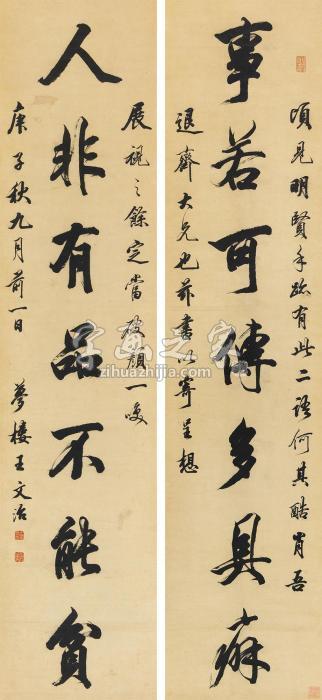 事若可傳多具癖
頃見明賢手跡有此二語何其酷肖吾
退齋大兄也茲書以寄呈想
人非有品不能貧
展視之餘定當破顏一笑
庚子秋九月前一日 夢樓王文治
字画之家
zihuazhijia.com